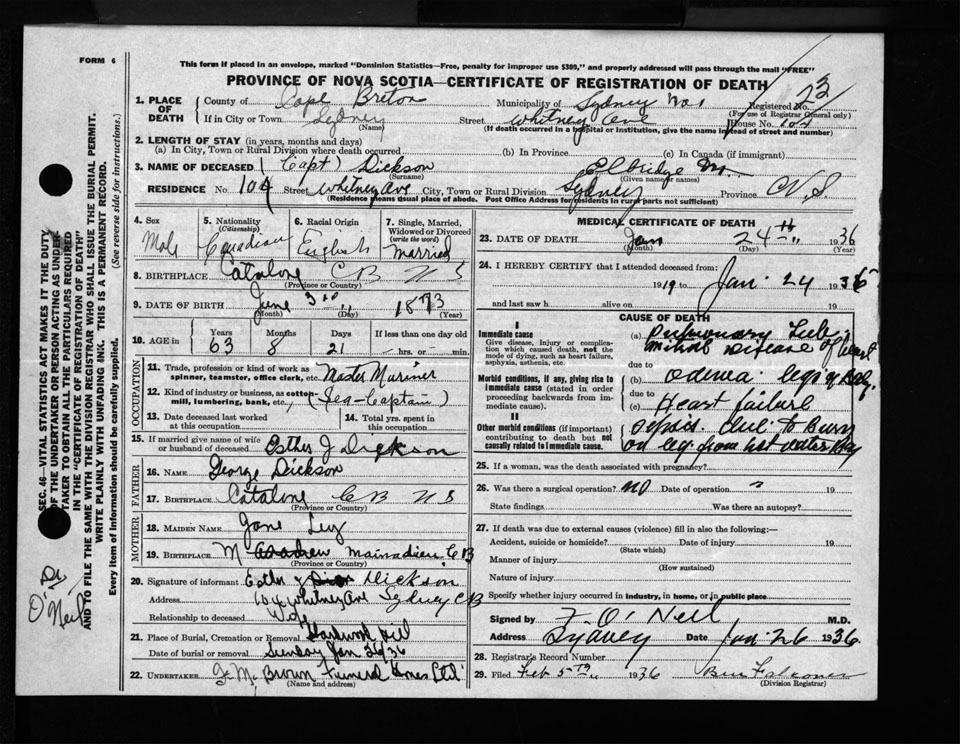 FORM 6
This form if placed in an envelope, marked "Dominion Statistics—Free, penalty for improper use $300," and properly addressed will pass through the mail "FREE"
PROVINCE OF NOVA SCOTIA—CERTIFICATE OF REGISTRATION OF DEATH
73
1. PLACE OF DEATH
County of Cape Breton Municipality of Sydney Registered No.
(For use of Registrar General only)
If in City or Town Sydney Street Whitney Ave House No. 104
(Name) (If death occurred in a hospital or institution, give the name instead of street and number)
2. LENGTH OF STAY (in years, months and days)
(a) In City, Town or Rural Division where death occurred (b) In Province (c) In Canada (if immigrant)
3. NAME OF DECEASED (Capt) Dickson Elbridge M.
(Surname) (Given name or names)
RESIDENCE No. 104 Street Whitney Ave City, Town or Rural Division Sydney Province N.S.
(Residence means usual place of abode. Post Office Address for residents in rural parts not sufficient)
4. Sex 5. Nationality (Citizenship) 6. Racial Origin 7. Single, Married, Widowed or Divorced (write the word)
Male Canadian English Married
8. BIRTHPLACE Catalone C B N S
(Province or County)
9. DATE OF BIRTH June 3rd 1873
(Month) (Day) (Year)
10. AGE in Years Months Days If less than one day old
63 8 21 hrs. or min.
OCCUPATION
11. Trade, profession or kind of work as spinner, teamster, office clerk, etc. Master Mariner
12. Kind of industry or business, as cotton-mill, lumbering, bank, etc., (Sea-Captain)
13. Date deceased last worked at this occupation 14. Total yrs. spent in this occupation
15. If married give name of wife or husband of deceased Esther J Dickson
FATHER
16. NAME George Dickson
17. BIRTHPLACE Catalone C B N S
(Province or Country)
MOTHER
18. MAIDEN NAME Jane
19. BIRTHPLACE Mainadieu C B
(Province or Country)
20. Signature of informant Dickson
Address 104 Whitney Ave Sydney CB
Relationship to deceased Wife
21. Place of Burial, Cremation or Removal Hardwood Hill
Date of burial or removal Sunday Jan 26/36
22. UNDERTAKER Brown Funeral Home Ltd
(Name and address)
MEDICAL CERTIFICATE OF DEATH
23. DATE OF DEATH Jan 24th 1936
(Month) (Day) (Year)
24. I HEREBY CERTIFY that I attended deceased from:
19 to Jan 24 1936
and last saw h alive on 19
CAUSE OF DEATH
I
Immediate cause
Give disease, injury or complication which caused death, not the mode of dying, such as heart failure, asphyxia, asthenia, etc.
(a) Pulmonary
Mitral Disease of heart
due to
Morbid conditions, if any, giving rise to immediate cause (stated in order proceeding backwards from immediate cause).
(b) odema legs
due to
(c) Heart failure
II
Other morbid conditions (if important) contributing to death but not causally related to immediate cause.
due to Burn
on leg from hot water
25. If a woman, was the death associated with pregnancy?
26. Was there a surgical operation? no Date of operation 19
State findings Was there an autopsy?
27. If death was due to external causes (violence) fill in also the following:—
Accident, suicide or homicide? Date of injury 19
(State which)
Manner of injury
(How sustained)
Nature of injury
Specify whether injury occurred in industry, in home, or in public place
Signed by O'Neil M.D.
Address Sydney Date Jan 26 1936
28. Registrar's Record Number
29. Filed Feb 5th 1936
(Division Registrar)
SEC. 46—VITAL STATISTICS ACT MAKES IT THE DUTY OF THE UNDERTAKER OR PERSON ACTING AS UNDERTAKER TO OBTAIN ALL THE PARTICULARS REQUIRED IN THE "CERTIFICATE OF REGISTRATION OF DEATH" AND TO FILE THE SAME WITH THE DIVISION REGISTRAR WHO SHALL ISSUE THE BURIAL PERMIT.
WRITE PLAINLY WITH UNFADING INK. THIS IS A PERMANENT RECORD.
Every item of Information should be carefully supplied. (See reverse side for instructions.)
Dr
O'Neil